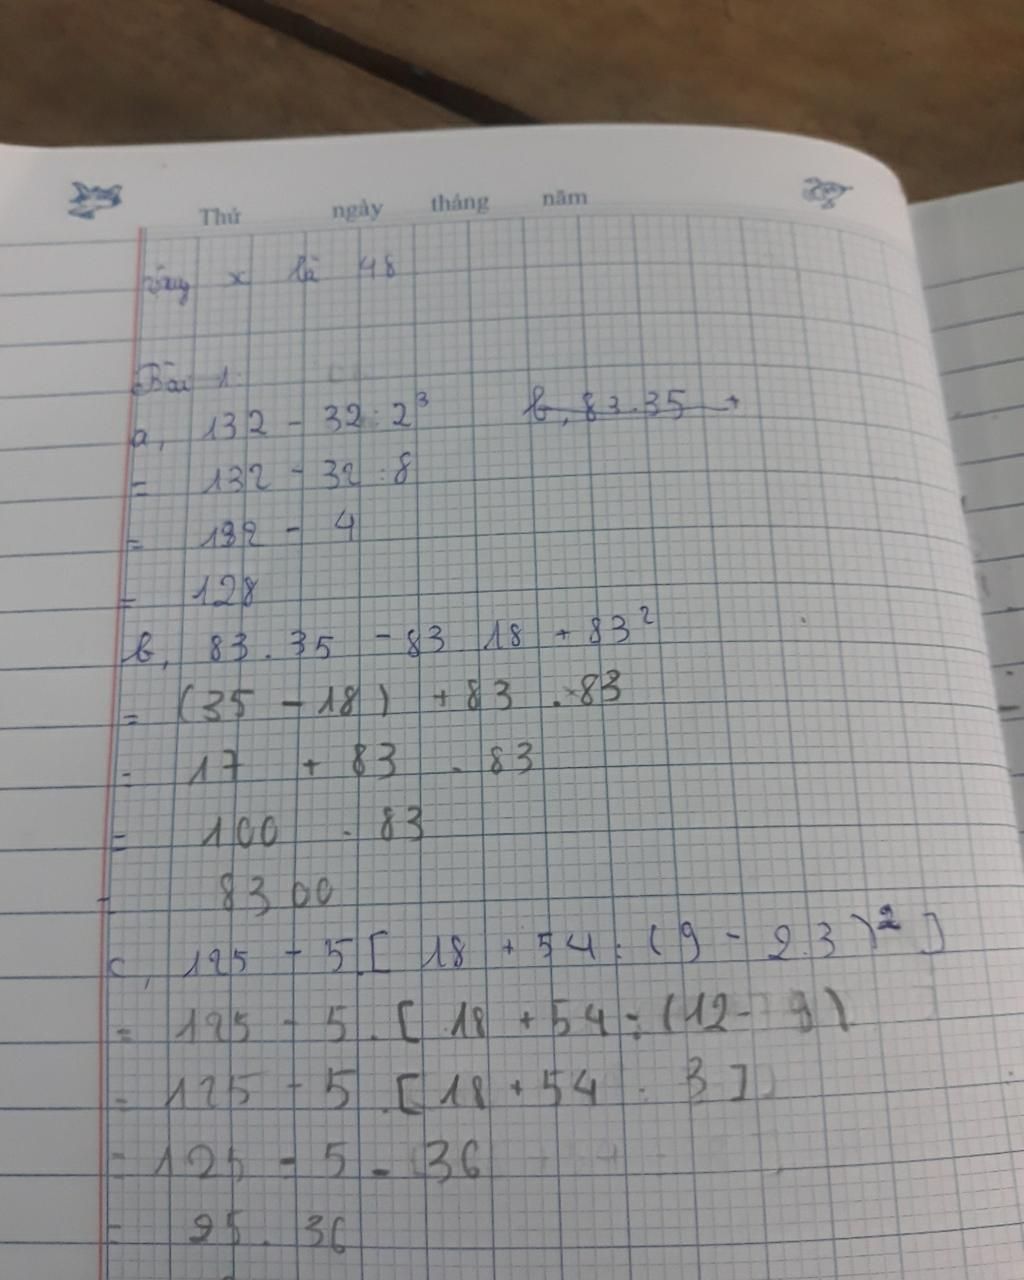 Thứ ngày tháng năm
x là 48
Bài 1:
a, 132 - 32 : 2³ b, 83.35 +
= 132 - 32 : 8
= 132 - 4
= 128
b, 83 . 35 - 83 . 18 + 83²
= (35 - 18) + 83 . 83
= 17 + 83 . 83
= 100 . 83
= 8300
c, 125 - 5 [ 18 + 54 : (9 - 2.3)² ]
= 125 - 5 . [ 18 + 54 : (12 - 9)
= 125 - 5 . [ 18 + 54 : 3 ]
= 125 - 5 - 36
= 25 . 36